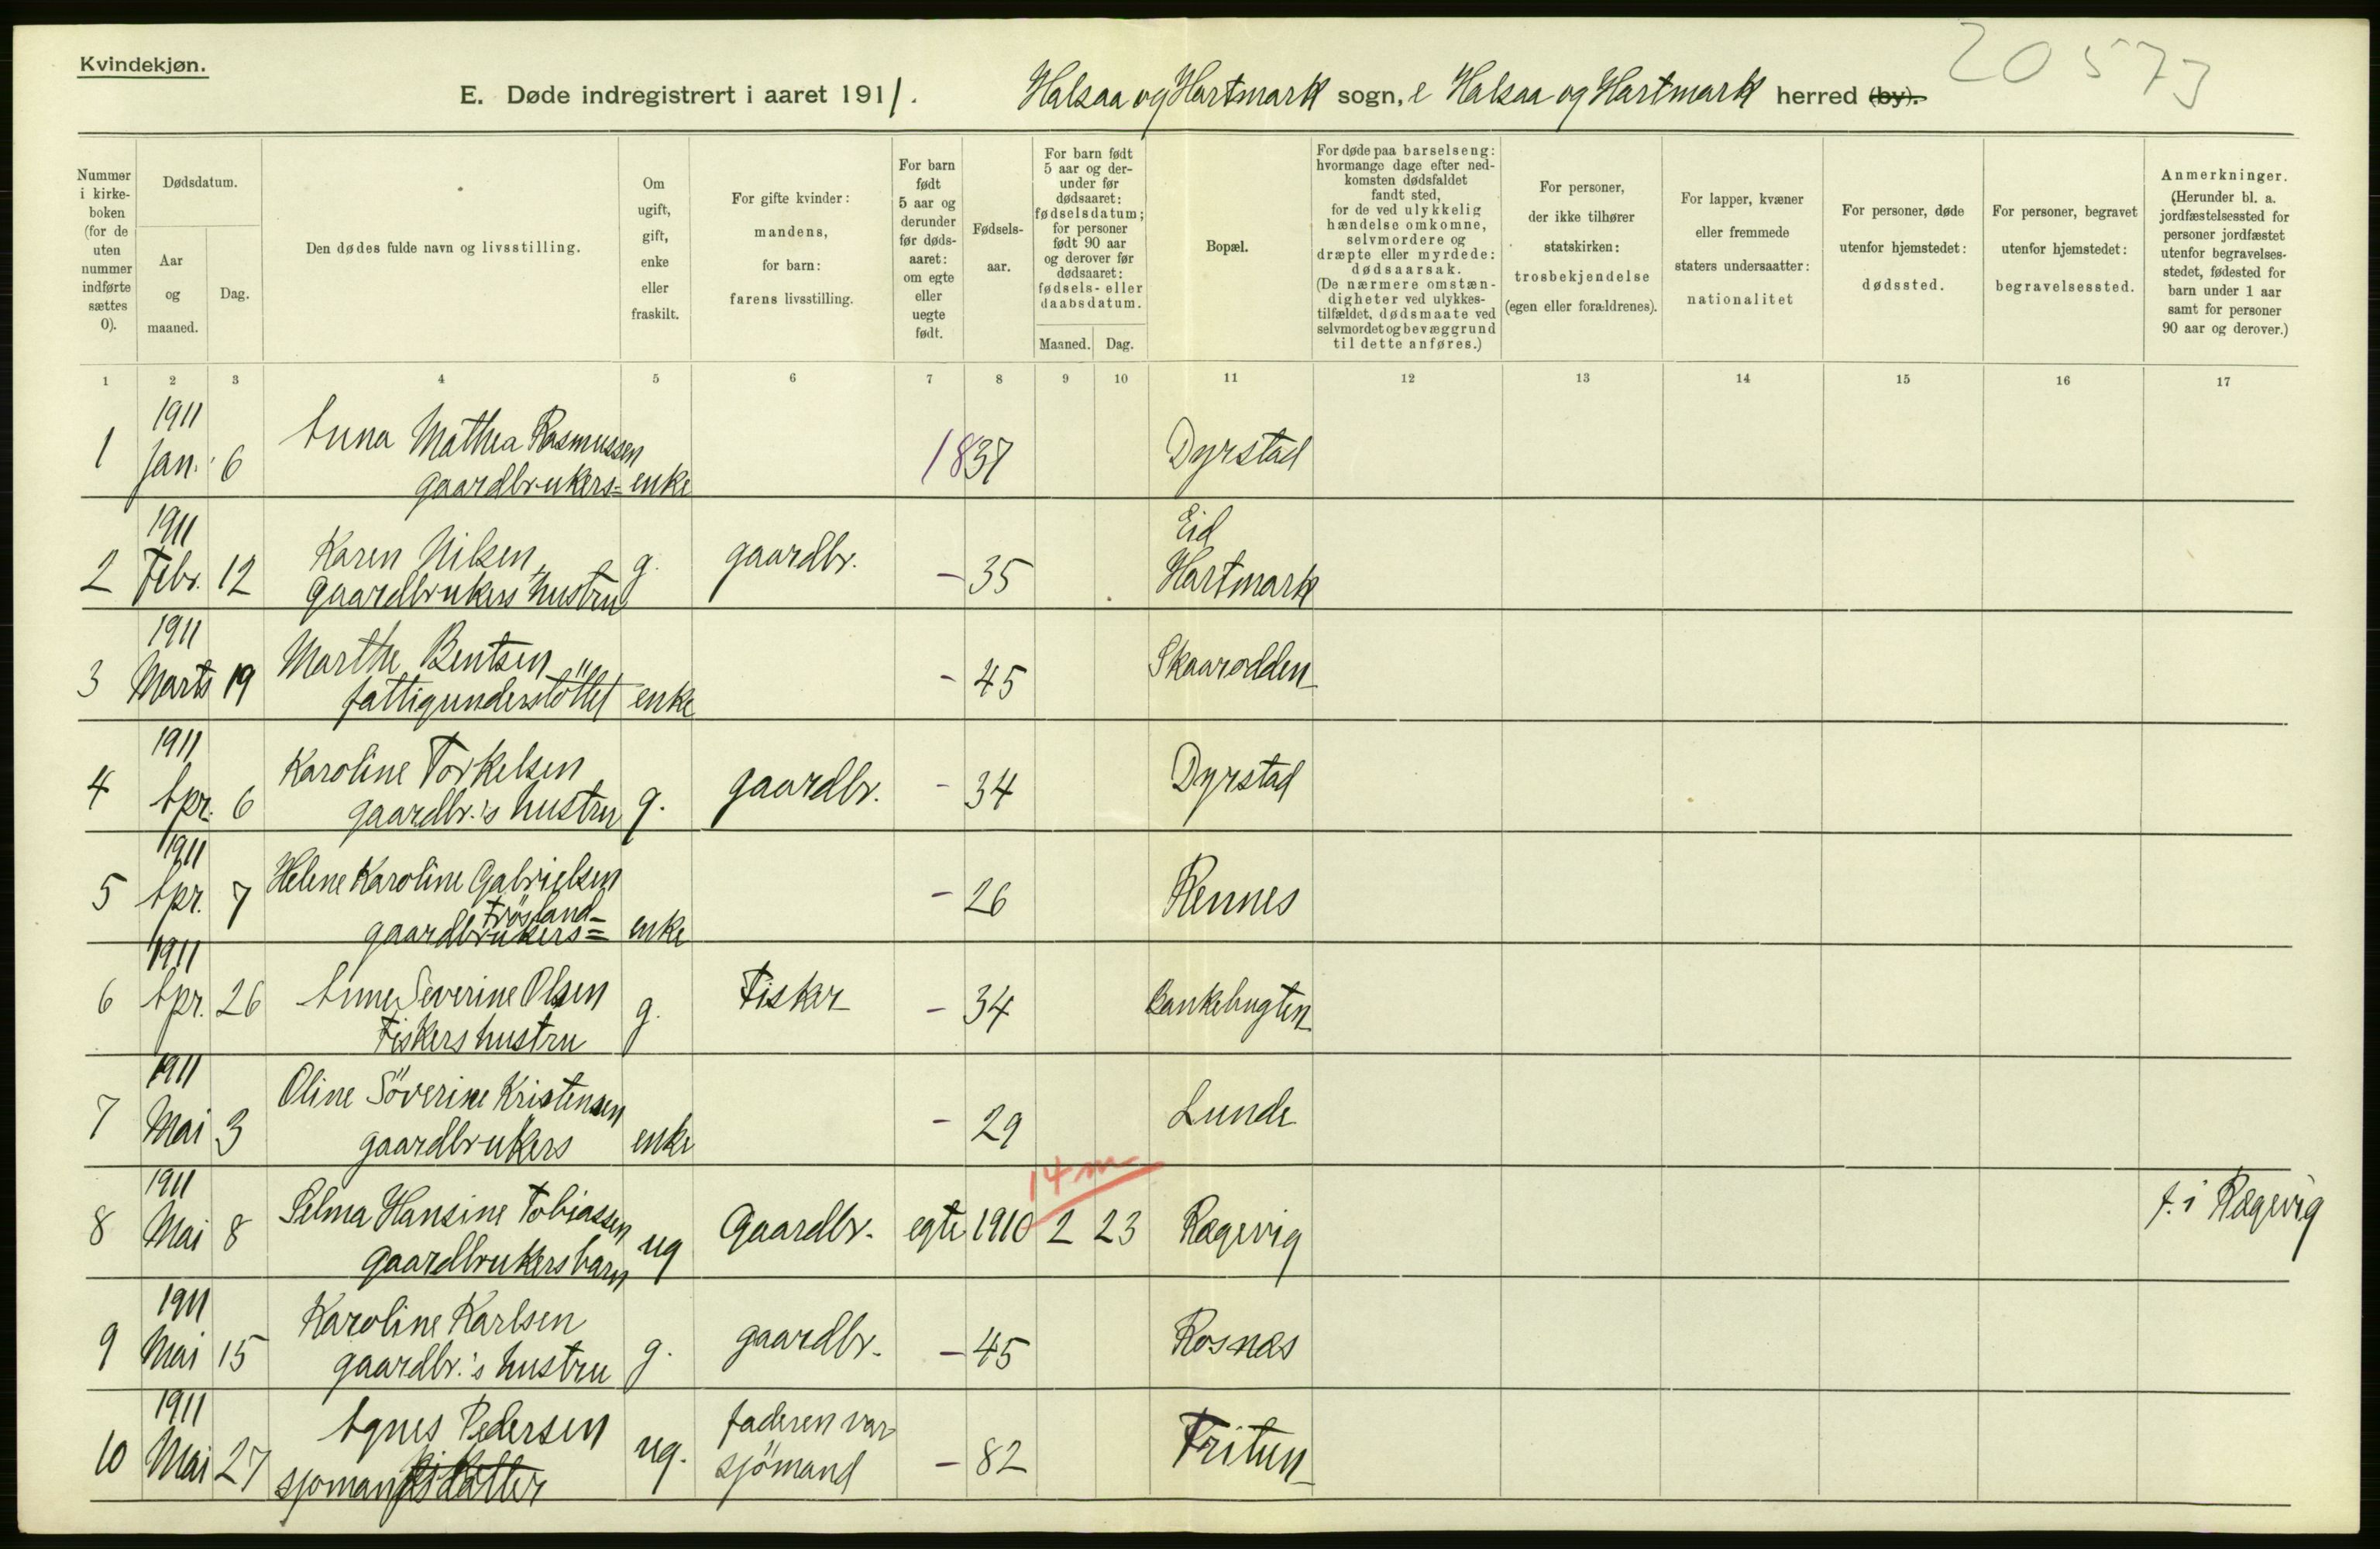 Kvindekjøn.
20573
E. Døde indregistrert i aaret 1911. Halsaa og Hartmark sogn, i Halsaa og Hartmark herred (by).
Nummer i kirkeboken (for de uten nummer indførte sættes 0).
Dødsdatum.
Aar og maaned.
Dag.
Den dødes fulde navn og livsstilling.
Om ugift, gift, enke eller fraskilt.
For gifte kvinder: mandens, for barn: farens livsstilling.
For barn født 5 aar og derunder før dødsaaret: om egte eller uegte født.
Fødselsaar.
For barn født 5 aar og derunder før dødsaaret: fødselsdatum; for personer født 90 aar og derover før dødsaaret: fødsels- eller daabsdatum.
Maaned. Dag.
Bopæl.
For døde paa barselseng: hvormange dage efter nedkomsten dødsfaldet fandt sted, for de ved ulykkelig hændelse omkomne, selvmordere og dræpte eller myrdede: dødsaarsak. (De nærmere omstændigheter ved ulykkestilfældet, dødsmaate ved selvmordet og bevæggrund til dette anføres.)
For personer, der ikke tilhører statskirken: trosbekjendelse (egen eller forældrenes).
For lapper, kvæner eller fremmede staters undersaatter: nationalitet
For personer, døde utenfor hjemstedet: dødssted.
For personer, begravet utenfor hjemstedet: begravelsessted.
Anmerkninger. (Herunder bl. a. jordfæstelsessted for personer jordfæstet utenfor begravelsesstedet, fødested for barn under 1 aar samt for personer 90 aar og derover.)
1 2 3 4 5 6 7 8 9 10 11 12 13 14 15 16 17
1911
1 Jan. 6 Anna Mathea Rasmussen 1837 Dyrstad
gaardbrukers= enke
1911 Eid
2 Febr. 12 Karen Nilsen, g. gaardbr. - 35 Hartmark
gaardbrukers hustru
1911
3 Marts 19 Marthe Bentsen - 45 Skaarodden
fattigunderstöttet enke
1911
4 Apr. 6 Karoline Torkelsen gaardbr. - 34 Dyrstad
gaardbr.'s hustru g.
1911
5 Apr. 7 Helene Karoline Gabrielsen - 26 Rennes
Frösland-
gaardbrukers= enke
1911
6 Apr. 26 Anne Severine Olsen g. Fisker - 34 Bankebugten
Fiskers hustru
1911
7 Mai 3 Oline Söverine Kristensen - 29 Lunde
gaardbrukers enke
1911 14 m
8 Mai 8 Selma Hansine Tobiassen ug Gaardbr. egte 1910 2 23 Rægevig f. i Rægevig
gaardbrukersbarn
1911
9 Mai 15 Karoline Karlsen g. gaardbr. - 45 Rosnes
gaardbr.'s hustru
1911
10 Mai 27 Agnes Pedersen ug. faderen var - 82 Tritun
sjömand